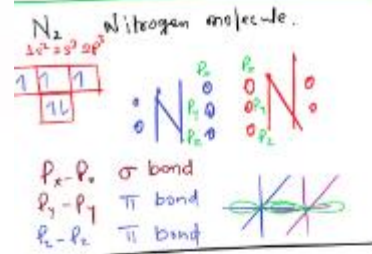 N₂ Nitrogen molecule.
1s² 2s² 2p³
1 1 1
1L
Pₓ Pₓ
: N N :
P_y P_y
P_z P_z
Pₓ-Pₓ σ bond
P_y-P_y π bond
P_z-P_z π bond